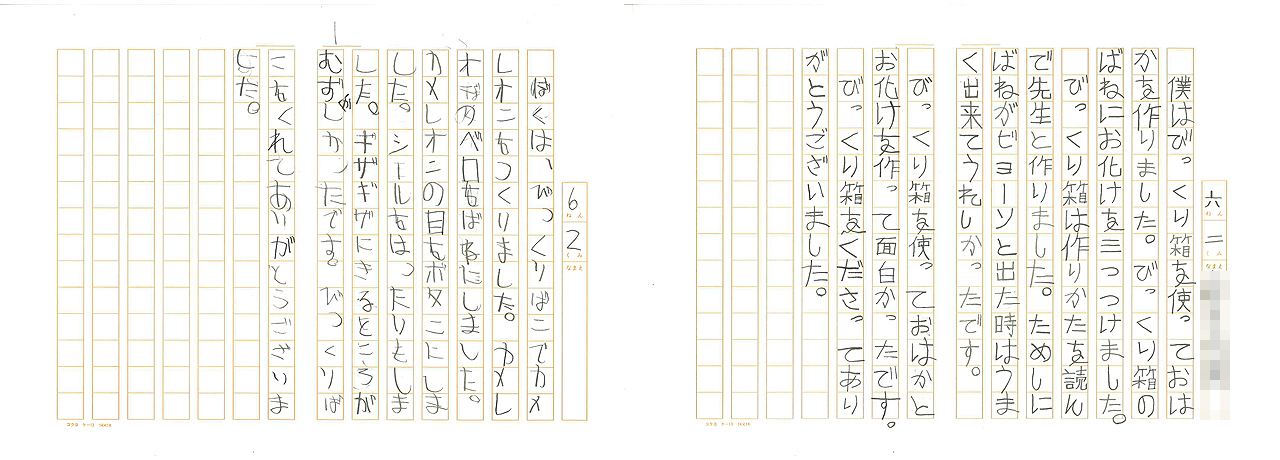 六ねん二くみなまえ
僕はびっくり箱を使っておは
かを作りました。びっくり箱の
ばねにお化けを三つつけました。
びっくり箱は作りかたを読ん
で先生と作りました。ためしに
ばねがビョーンと出た時はうま
く出来てうれしかったです。
びっくり箱を使っておはかと
お化けを作って面白かったです。
びっくり箱をくださってあり
がとうございました。
コクヨ ケー10 14×14
6ねん2くみなまえ
ぼくは、びっくりばこでカメ
レオンをつくりました。カメレ
オンのベロをばねにしました。
カメレオンの目をボタンにしま
した。シールをはったりもしま
した。ギザギザにきるところが
むずかしかったです。びっくりば
こをくれてありがとうございま
した。